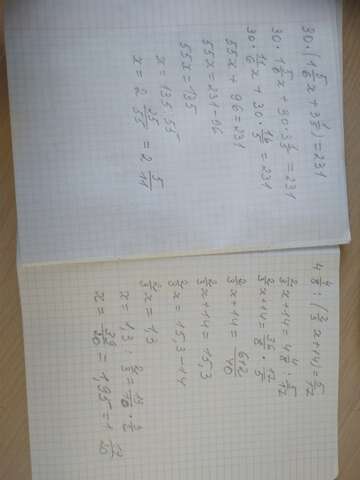 30·(1 5/6 x + 3 1/5) = 231
30·1 5/6 x + 30·3 1/5 = 231
30·11/6 x + 30·16/5 = 231
55x + 96 = 231
55x = 231-96
55x = 135
x = 135:55
x = 2 25/55 = 2 5/11
4 4/8 : (2/3 x + 14) = 5/17
2/3 x + 14 = 4 4/8 : 5/17
2/3 x + 14 = 36/8 · 17/5
2/3 x + 14 = 612/40
2/3 x + 14 = 15,3
2/3 x = 15,3-14
2/3 x = 1,3
x = 1,3 : 2/3 = 13/10 · 3/2
x = 39/20 = 1,95 = 1 19/20